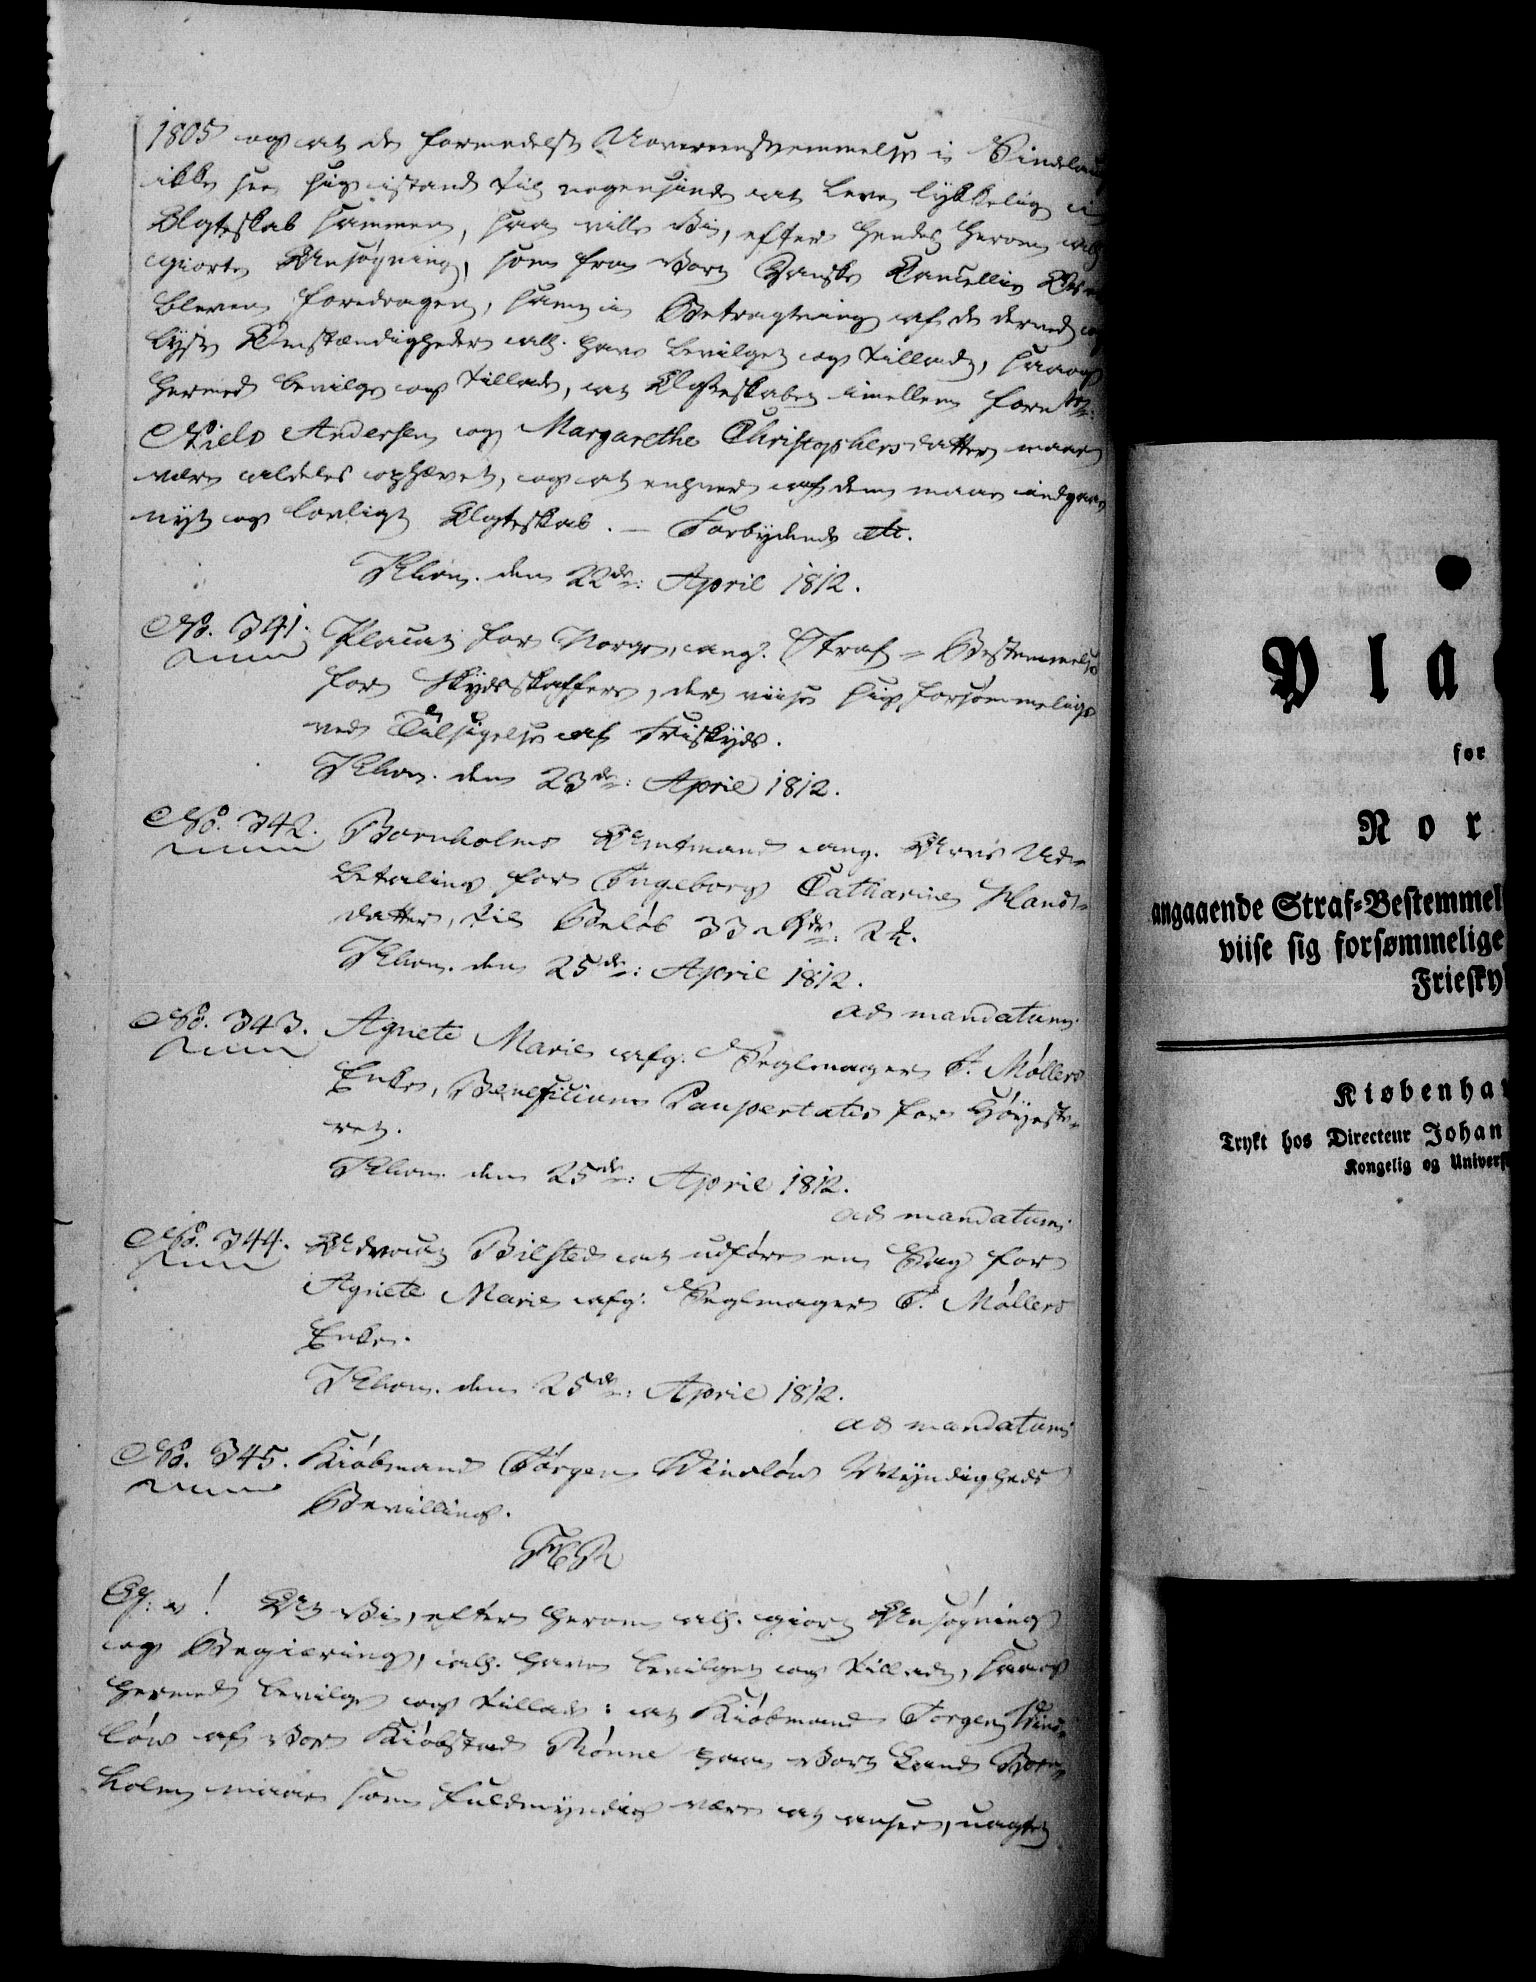 1805 og at de formedelst Uovereensstemmelse i Sindelaug
ikke see sig istand til nogensinde at leve lykkelig i
Ægteskab sammen, saa ville Vi, efter hendes herom
giorte Ansøgning, som fra Vort Danske Cancellie Os er
bleven foredragen, samt i Betragtning af de derved
lyste Omstændigheder all. have bevilget og tilladt, saa og
hermed bevilge og tillade, at Ægteskabet imellem fornte:
Niels Andersen og Margarethe Christophersdatter maae
være aldeles ophævet, og at enhver af dem maae indgaae
nyt og lovligt Ægteskab. — Forbydende etc.
Khavn. den 22de: April 1812.
No. 341. Placat for Norge, ang. Straf-Bestemmelse
for Skydsskaffere, der viise sig forsømmelige
ved Tilsigelse af Frieskyds.
Khavn. den 23de: April 1812.
No. 342. Bornholms Amtmand ang. Arve Ud-
betaling for Ingeborg Catharine Hans-
datter, til Beløb 33 Rdr: 2 ß.
Khavn. den 25de: April 1812.
ad mandatum
No. 343. Agnete Marie afg. Seglmager P. Møllers
Enke, Beneficium Paupertatis for Høyeste-
ret.
Khavn. den 25de: April 1812.
ad mandatum
No. 344. Advocat Bilsted at udføre en Sag for
Agnete Marie afg. Seglmager P. Møllers
Enke.
Khavn. den 25de: April 1812.
ad mandatum
No. 345. Kiøbmand Jørgen Windløw Myndigheds
Bevilling.
G: v! At Vi, efter herom all. giort Ansøgning
og Begiering, all. have bevilget og tilladt, saa og
hermed bevilge og tillade: at Kiøbmand Jørgen Wind-
løw af Vor Kiøbstad Rønne paa Vort Land Born-
holm maae som fuldmyndig være at ansee, uagtet
Pla
for
Nor
angaaende Straf-Bestemmel
viise sig forsømmelige
Friesky
Kiøbenha
Trykt hos Directeur Johan
Kongelig og Univers